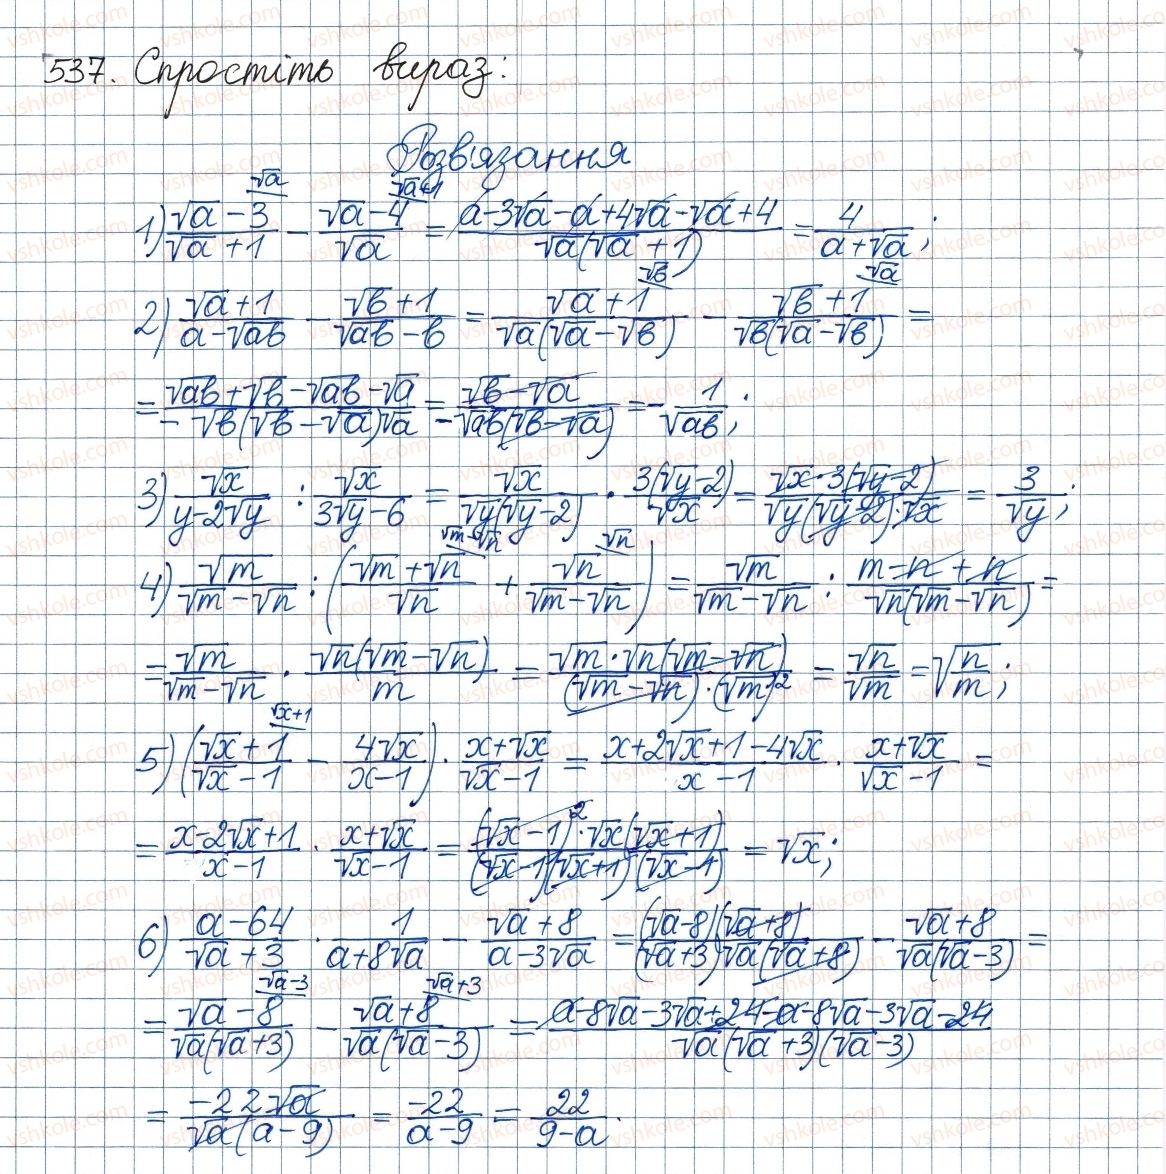 537. Спростіть вираз:
Розв'язання
1) (√a-3)/(√a+1) [√a] - (√a-4)/√a [√a+1] = (a-3√a-a+4√a-√a+4)/(√a(√a+1)) = 4/(a+√a);
2) (√a+1)/(a-√ab) - (√b+1)/(√ab-b) = (√a+1)/(√a(√a-√b)) [√b] - (√b+1)/(√b(√a-√b)) [√a] =
= (√ab+√b-√ab-√a)/(-√b(√b-√a)√a) = (√b-√a)/(-√ab(√b-√a)) = -1/√ab;
3) √x/(y-2√y) : √x/(3√y-6) = √x/(√y(√y-2)) · 3(√y-2)/√x = (√x·3(√y-2))/(√y(√y-2)·√x) = 3/√y;
4) √m/(√m-√n) : ((√m+√n)/√n [√m-√n] + √n/(√m-√n) [√n]) = √m/(√m-√n) : (m-n+n)/(√n(√m-√n)) =
= √m/(√m-√n) · √n(√m-√n)/m = (√m·√n(√m-√n))/((√m-√n)·(√m)²) = √n/√m = √(n/m);
5) ((√x+1)/(√x-1) [√x+1] - 4√x/(x-1)) · (x+√x)/(√x-1) = (x+2√x+1-4√x)/(x-1) · (x+√x)/(√x-1) =
= (x-2√x+1)/(x-1) · (x+√x)/(√x-1) = ((√x-1)²·√x(√x+1))/((√x-1)(√x+1)(√x-1)) = √x;
6) (a-64)/(√a+3) · 1/(a+8√a) - (√a+8)/(a-3√a) = ((√a-8)(√a+8))/((√a+3)√a(√a+8)) - (√a+8)/(√a(√a-3)) =
= (√a-8)/(√a(√a+3)) [√a-3] - (√a+8)/(√a(√a-3)) [√a+3] = (a-8√a-3√a+24-a-8√a-3√a-24)/(√a(√a+3)(√a-3))
= -22√a/(√a(a-9)) = -22/(a-9) = 22/(9-a).